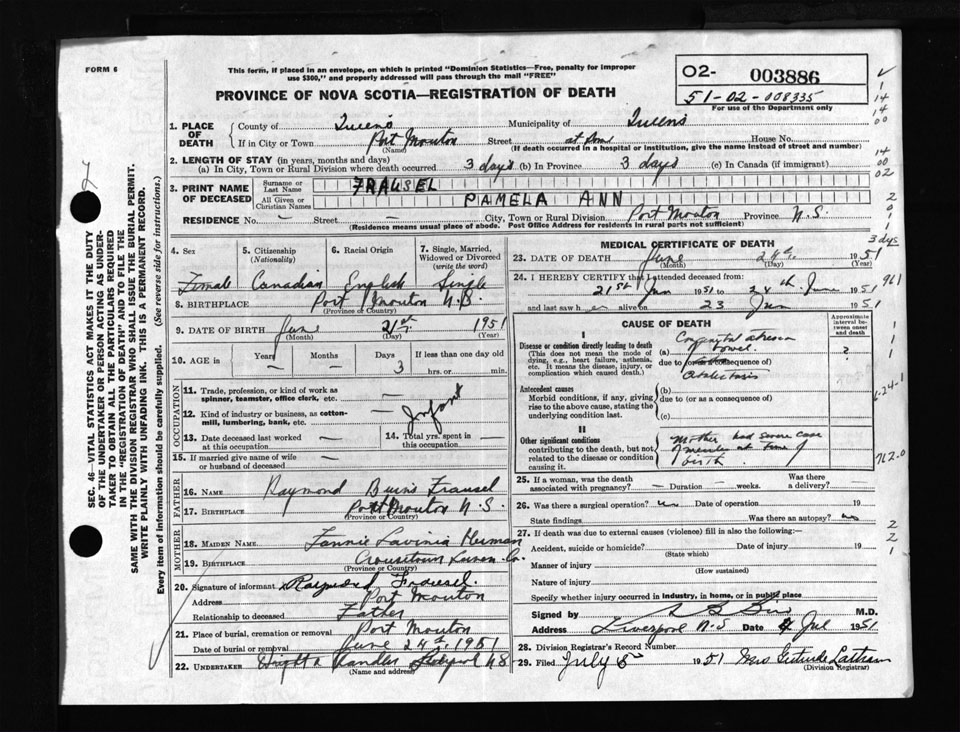 FORM 6
This form, if placed in an envelope, on which is printed "Dominion Statistics—Free, penalty for improper
use $300," and properly addressed will pass through the mail "FREE"
PROVINCE OF NOVA SCOTIA—REGISTRATION OF DEATH
O2- 003886
51-02-008335
For use of the Department only
1. PLACE OF DEATH
County of Queens Municipality of Queens
If in City or Town Port Mouton Street at home House No.
(Name) (If death occurred in a hospital or institution, give the name instead of street and number)
2. LENGTH OF STAY (in years, months and days)
(a) In City, Town or Rural Division where death occurred 3 days (b) In Province 3 days (c) In Canada (if immigrant)
3. PRINT NAME OF DECEASED
Surname or Last Name FRAUSEL
All Given or Christian Names PAMELA ANN
RESIDENCE No. — Street — City, Town or Rural Division Port Mouton Province N.S.
(Residence means usual place of abode. Post Office Address for residents in rural parts not sufficient)
4. Sex Female
5. Citizenship (Nationality) Canadian
6. Racial Origin English
7. Single, Married, Widowed or Divorced (write the word) Single
8. BIRTHPLACE Port Mouton
(Province or Country)
9. DATE OF BIRTH June 21st 1951
(Month) (Day) (Year)
10. AGE in Years — Months — Days 3 If less than one day old hrs. or min.
OCCUPATION
11. Trade, profession, or kind of work as spinner, teamster, office clerk, etc. —
12. Kind of industry or business, as cotton-mill, lumbering, bank, etc. — Infant
13. Date deceased last worked at this occupation —
14. Total yrs. spent in this occupation —
15. If married give name of wife or husband of deceased —
FATHER
16. NAME Raymond Burns Frausel
17. BIRTHPLACE Port Mouton N.S.
(Province or Country)
MOTHER
18. MAIDEN NAME Fannie Lavinia
19. BIRTHPLACE Crousetown Lunen. Co.
(Province or Country)
20. Signature of informant Raymond Frausel
Address Port Mouton
Relationship to deceased Father
21. Place of burial, cremation or removal Port Mouton
Date of burial or removal June 24th, 1951
22. UNDERTAKER N.S.
(Name and address)
MEDICAL CERTIFICATE OF DEATH
23. DATE OF DEATH June 24th 1951
(Month) (Day) (Year)
24. I HEREBY CERTIFY that I attended deceased from:
21st Jun 1951 to 24th June 1951
and last saw her alive on 23 Jun 1951
CAUSE OF DEATH
Approximate interval between onset and death
I
Disease or condition directly leading to death
(This does not mean the mode of dying, e.g., heart failure, asthenia, etc. It means the disease, injury, or complication which caused death.)
(a) Congenital atresia bowel. ?
due to (or as a consequence of)
Atelectasis
Antecedent causes
Morbid conditions, if any, giving rise to the above cause, stating the underlying condition last.
(b)
due to (or as a consequence of)
(c)
II
Other significant conditions contributing to the death, but not related to the disease or condition causing it.
Mother had severe case
of measles at time of
birth.
25. If a woman, was the death associated with pregnancy? — Duration — weeks. Was there a delivery? —
26. Was there a surgical operation? no Date of operation 19
State findings Was there an autopsy? no
27. If death was due to external causes (violence) fill in also the following:—
Accident, suicide or homicide? Date of injury 19
(State which)
Manner of injury
(How sustained)
Nature of injury
Specify whether injury occurred in industry, in home, or in public place
Signed by M.D.
Address Liverpool N.S Date 4 Jul 1951
28. Division Registrar's Record Number
29. Filed July 5 1951 Mrs Gertrude
(Division Registrar)
SEC. 46—VITAL STATISTICS ACT MAKES IT THE DUTY
OF THE UNDERTAKER OR PERSON ACTING AS UNDER-
TAKER TO OBTAIN ALL THE PARTICULARS REQUIRED
IN THE "REGISTRATION OF DEATH" AND TO FILE THE
SAME WITH THE DIVISION REGISTRAR WHO SHALL ISSUE THE BURIAL PERMIT.
WRITE PLAINLY WITH UNFADING INK. THIS IS A PERMANENT RECORD.
Every item of information should be carefully supplied. (See reverse side for instructions.)
14
14
00
14
00
02
2
0
1
3 dys
961
1-24-1
762.0
2
2
1